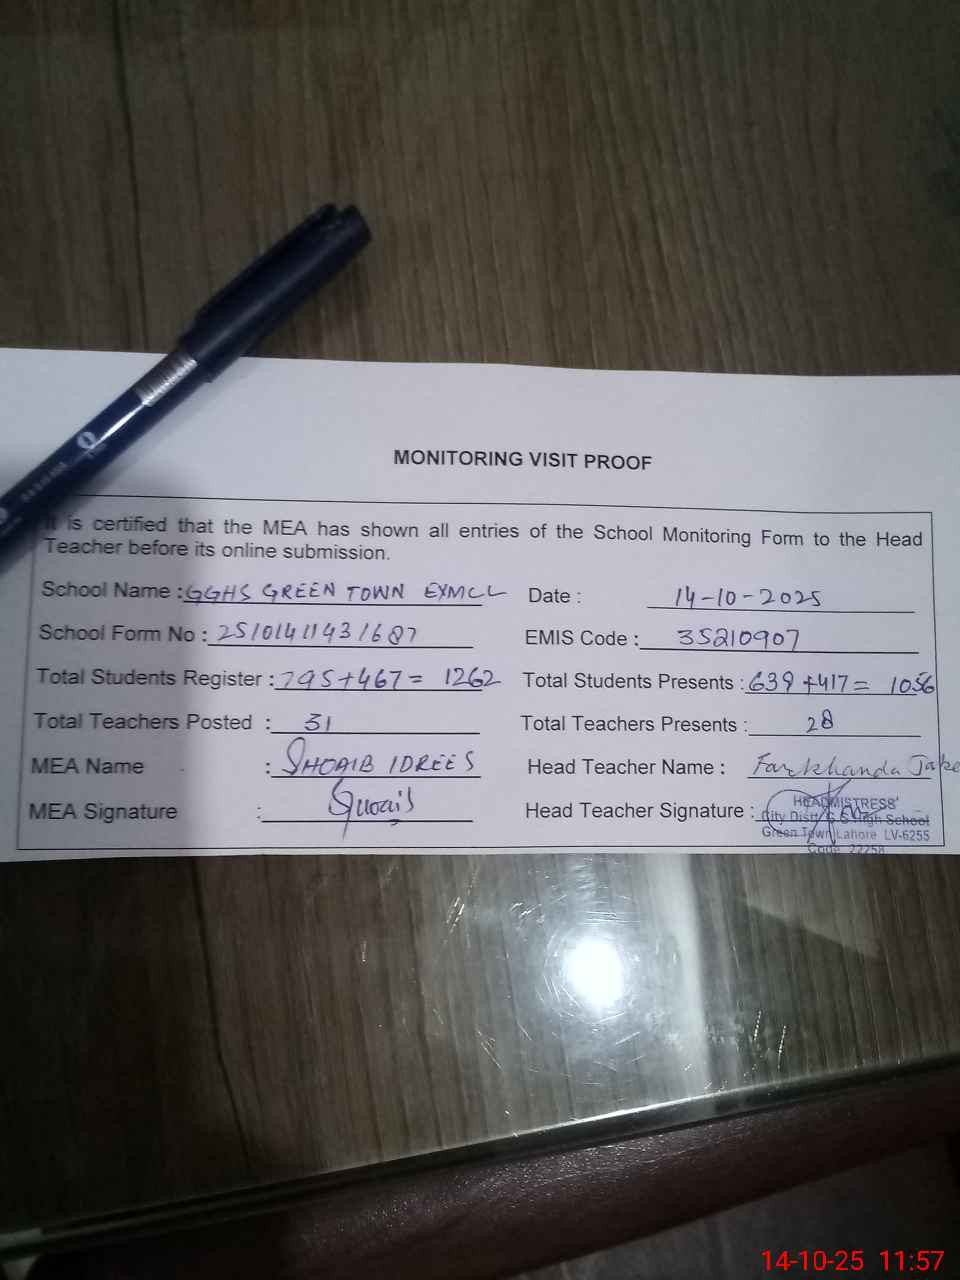 MONITORING VISIT PROOF
It is certified that the MEA has shown all entries of the School Monitoring Form to the Head
Teacher before its online submission.
School Name : GGHS GREEN TOWN EXMCL Date : 14-10-2025
School Form No : 25101411431687 EMIS Code : 35210907
Total Students Register : 795+467= 1262 Total Students Presents : 639+417= 1056
Total Teachers Posted : 31 Total Teachers Presents : 28
MEA Name : SHOAIB IDREES Head Teacher Name : Farkhanda
MEA Signature : Shoaib Head Teacher Signature :
HEADMISTRESS
City Distt High School
Green Town Lahore LV-6255
Code 22258
14-10-25 11:57